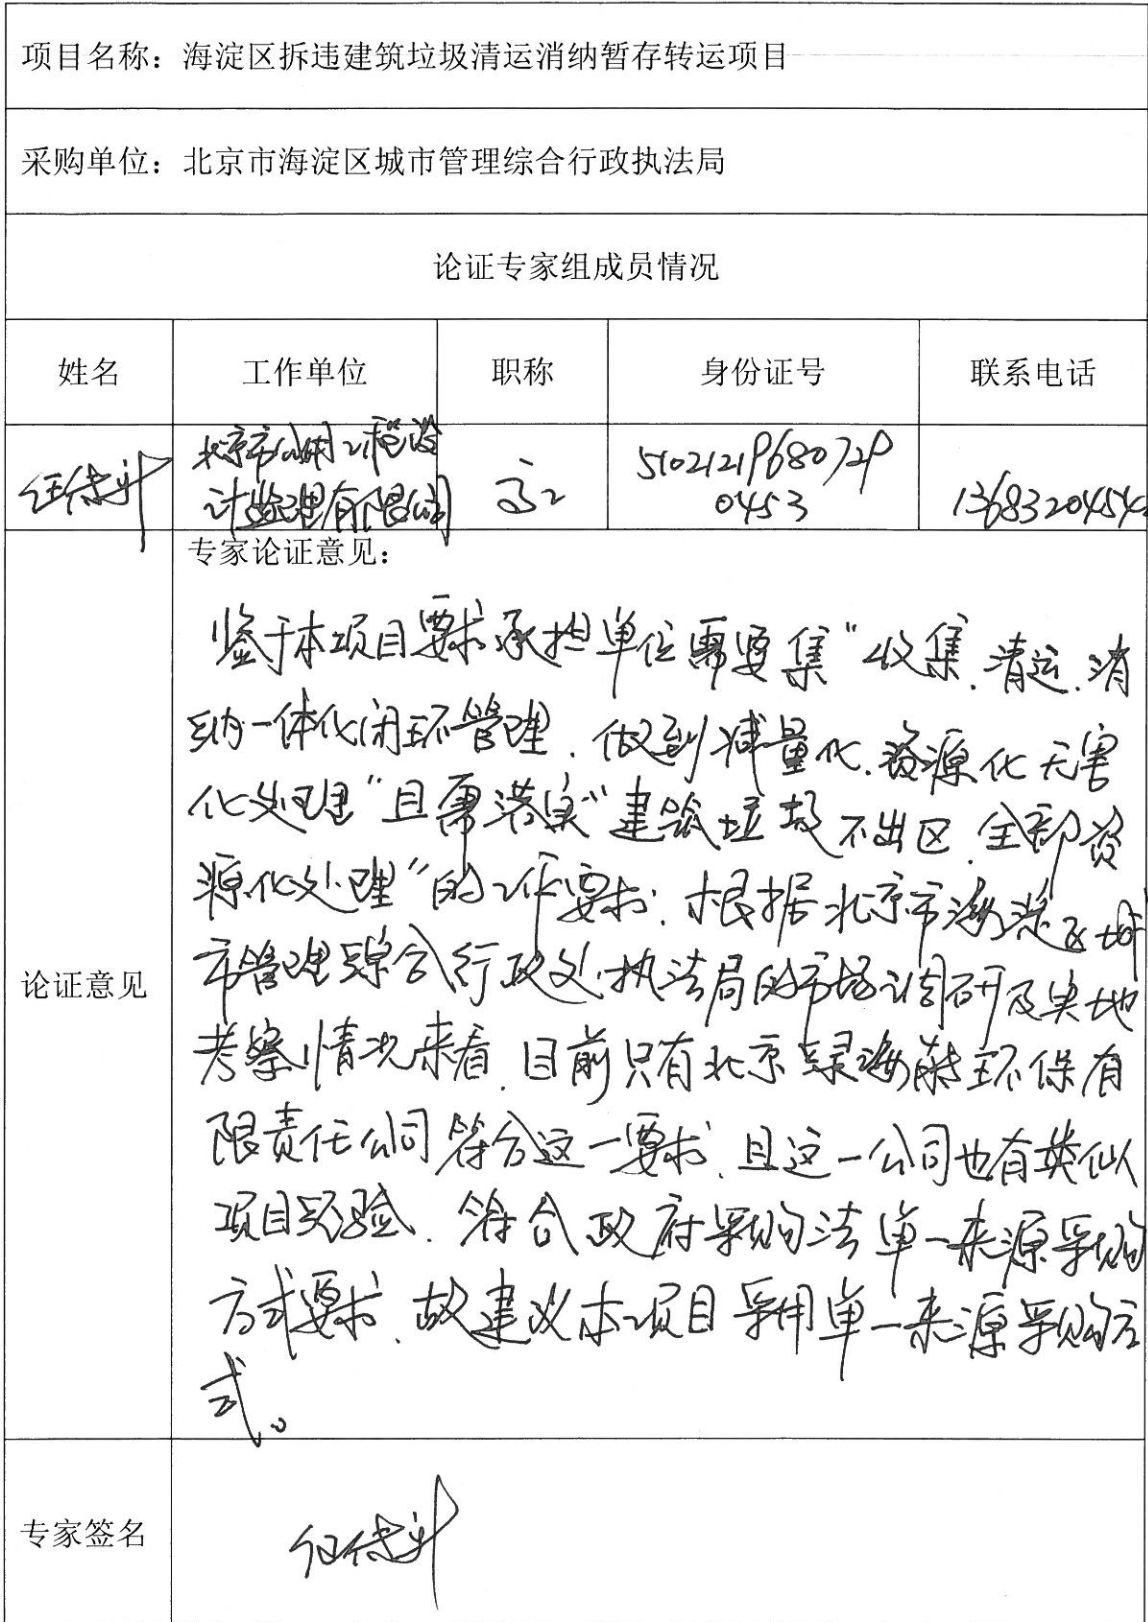 项目名称：海淀区拆违建筑垃圾清运消纳暂存转运项目
采购单位：北京市海淀区城市管理综合行政执法局
论证专家组成员情况
姓名 工作单位 职称 身份证号 联系电话
北京市公用工程设
计监理有限公司
高工
510212196807290453
1368320454
论证意见
专家论证意见：
鉴于本项目要求承担单位需要集“收集、清运、消
纳一体化闭环管理、做到减量化、资源化无害
化处理”且需落实“建筑垃圾不出区、全部资
源化处理”的工作要求，根据北京市海淀区城
市管理综合行政处执法局的市场调研及实地
考察情况来看，目前只有北京绿海 环保有
限责任公司符合这一要求，且这一公司也有类似
项目经验，符合政府采购法单一来源采购
方式要求，故建议本项目采用单一来源采购方
式。
专家签名